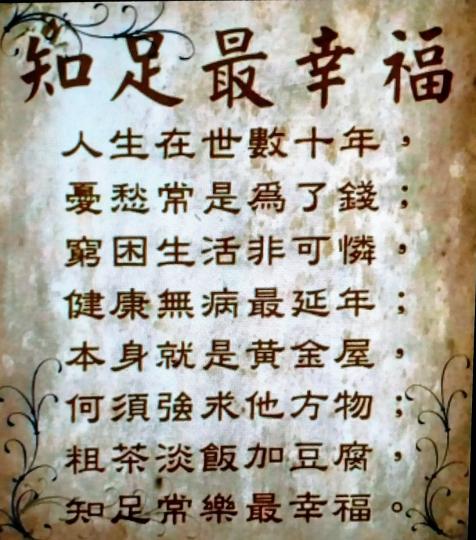 知足最幸福
人生在世數十年，
憂愁常是為了錢；
窮困生活非可憐，
健康無病最延年；
本身就是黃金屋，
何須強求他方物；
粗茶淡飯加豆腐，
知足常樂最幸福。